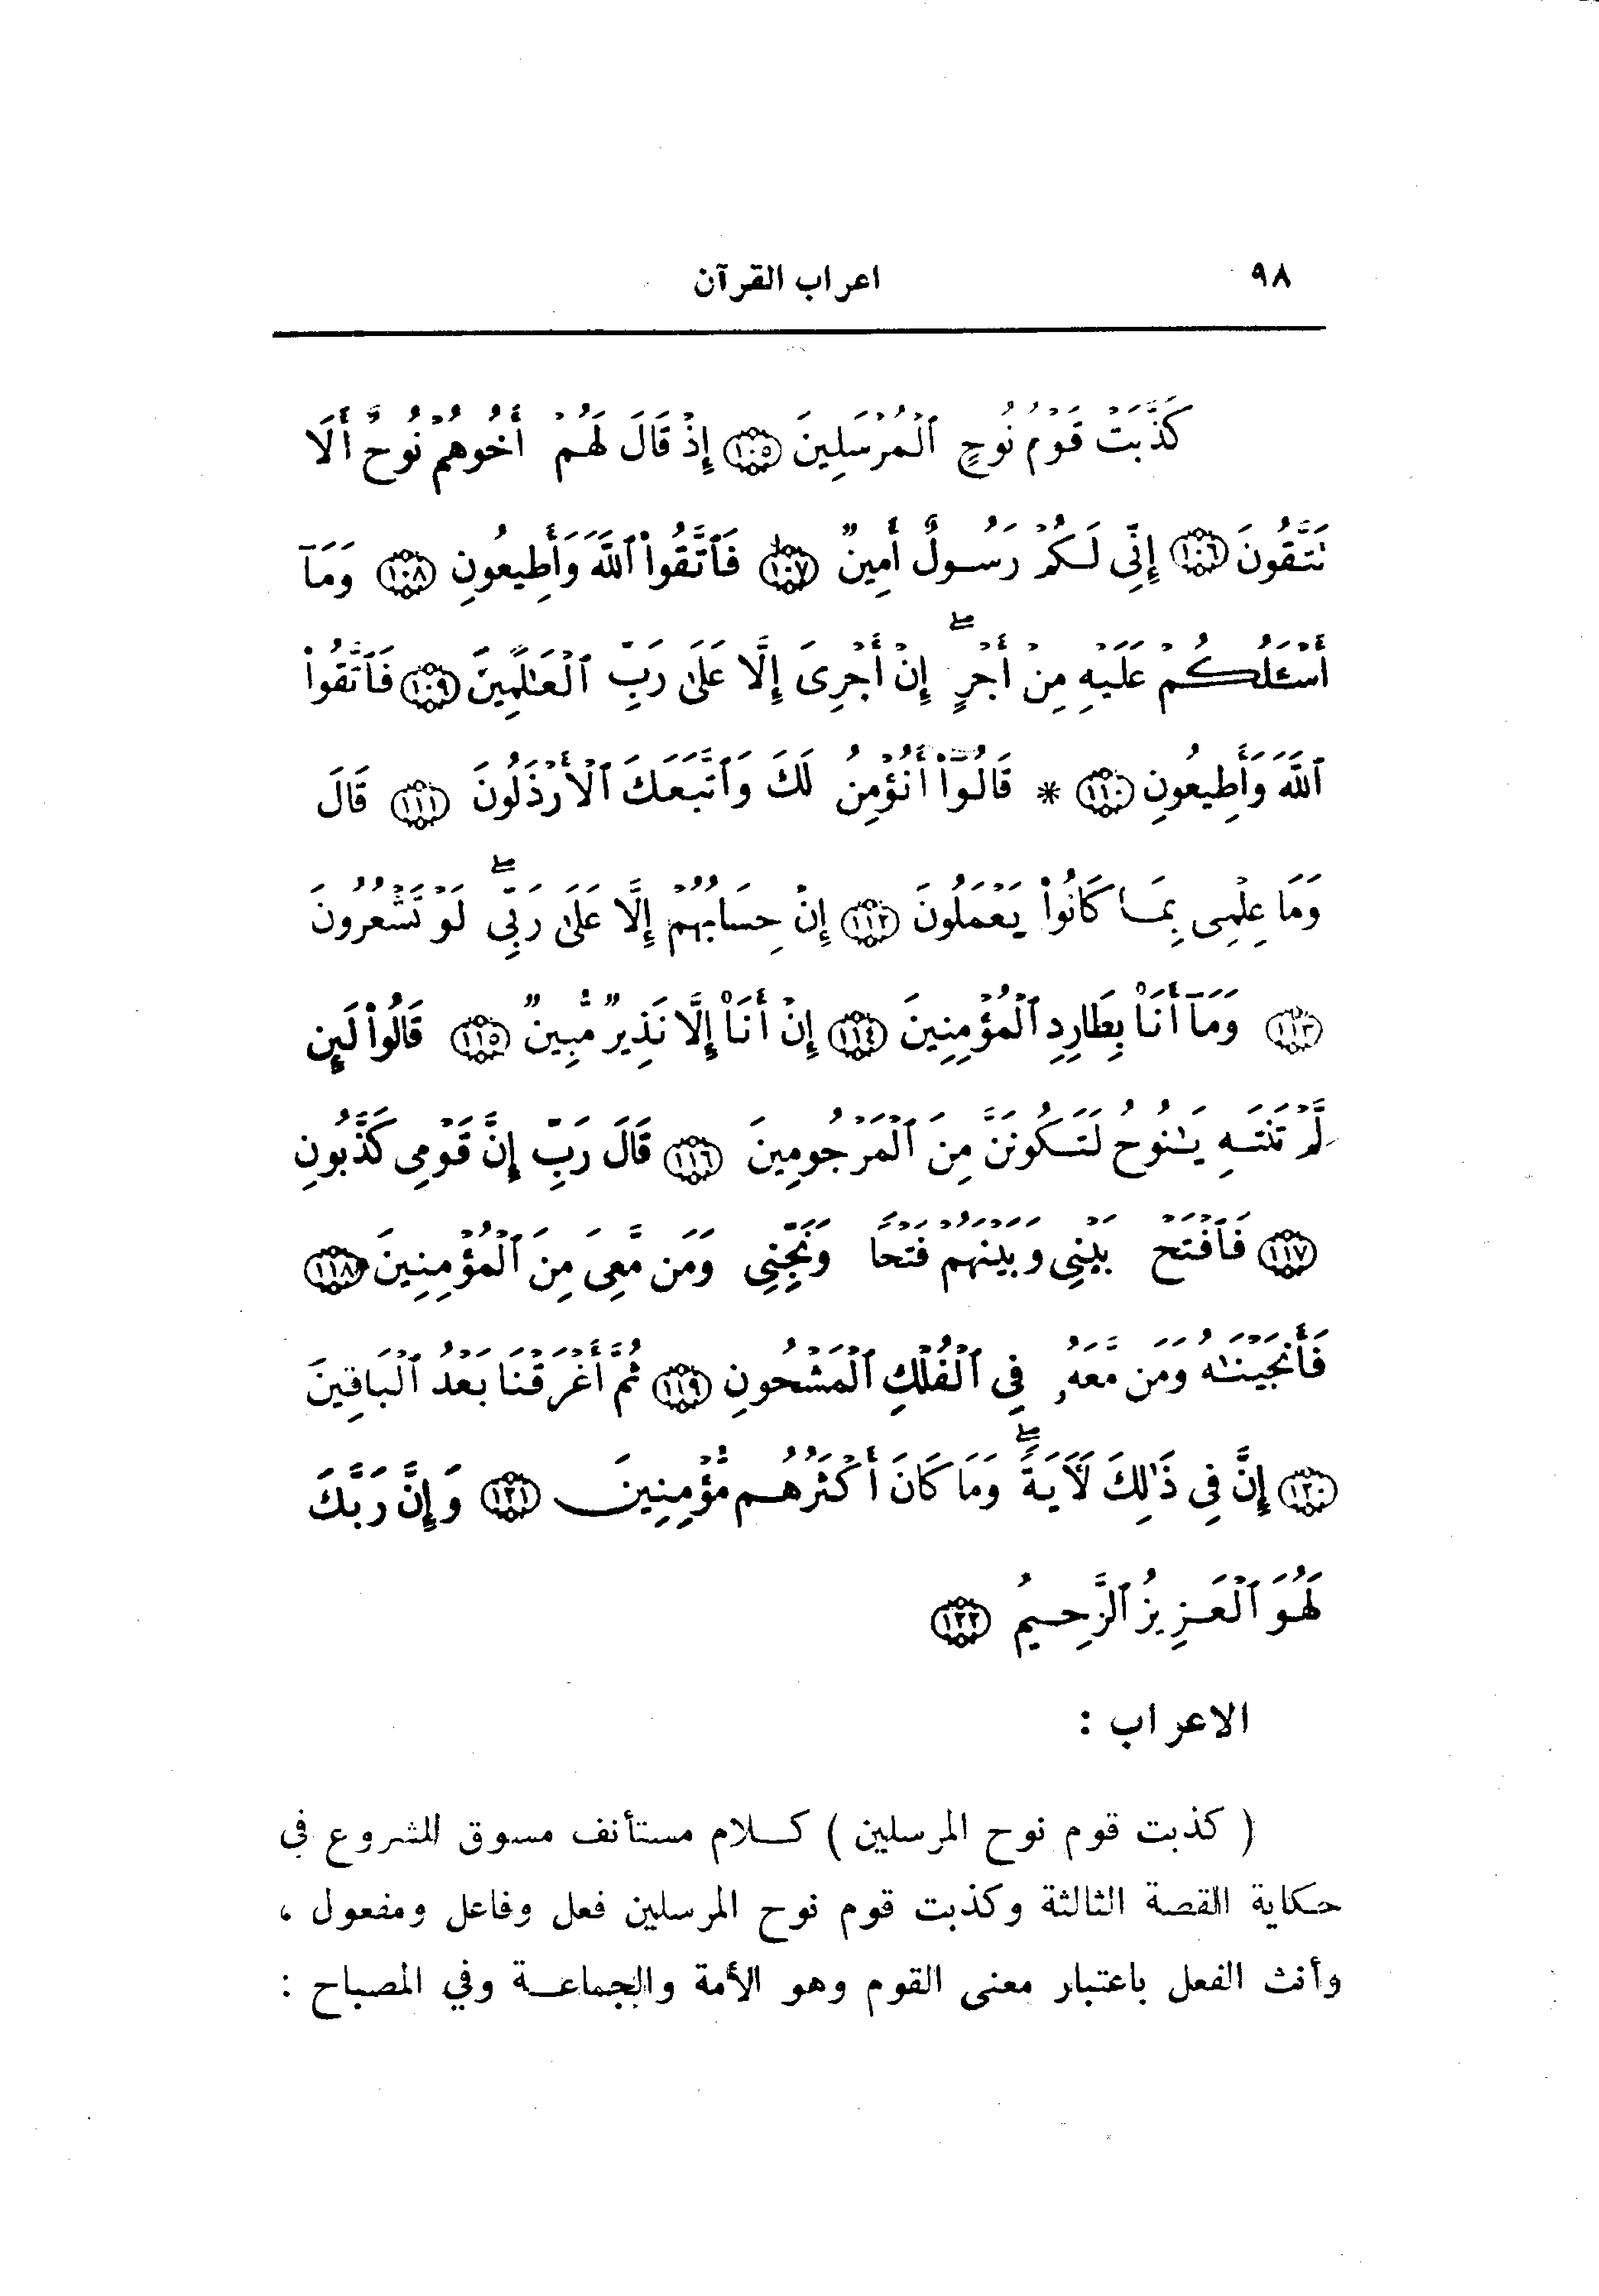 ٩٨ اعراب القرآن
كَذَّبَتْ قَوْمُ نُوحٍ ٱلْمُرْسَلِينَ ﴿١٠٥﴾ إِذْ قَالَ لَهُمْ أَخُوهُمْ نُوحٌ أَلَا
تَتَّقُونَ ﴿١٠٦﴾ إِنِّى لَكُمْ رَسُولٌ أَمِينٌ ﴿١٠٧﴾ فَٱتَّقُوا۟ ٱللَّهَ وَأَطِيعُونِ ﴿١٠٨﴾ وَمَآ
أَسْـَٔلُكُمْ عَلَيْهِ مِنْ أَجْرٍ ۖ إِنْ أَجْرِىَ إِلَّا عَلَىٰ رَبِّ ٱلْعَـٰلَمِينَ ﴿١٠٩﴾ فَٱتَّقُوا۟
ٱللَّهَ وَأَطِيعُونِ ﴿١١٠﴾ * قَالُوٓا۟ أَنُؤْمِنُ لَكَ وَٱتَّبَعَكَ ٱلْأَرْذَلُونَ ﴿١١١﴾ قَالَ
وَمَا عِلْمِى بِمَا كَانُوا۟ يَعْمَلُونَ ﴿١١٢﴾ إِنْ حِسَابُهُمْ إِلَّا عَلَىٰ رَبِّى ۖ لَوْ تَشْعُرُونَ
﴿١١٣﴾ وَمَآ أَنَا۠ بِطَارِدِ ٱلْمُؤْمِنِينَ ﴿١١٤﴾ إِنْ أَنَا۠ إِلَّا نَذِيرٌ مُّبِينٌ ﴿١١٥﴾ قَالُوا۟ لَئِن
لَّمْ تَنتَهِ يَـٰنُوحُ لَتَكُونَنَّ مِنَ ٱلْمَرْجُومِينَ ﴿١١٦﴾ قَالَ رَبِّ إِنَّ قَوْمِى كَذَّبُونِ
﴿١١٧﴾ فَٱفْتَحْ بَيْنِى وَبَيْنَهُمْ فَتْحًا وَنَجِّنِى وَمَن مَّعِىَ مِنَ ٱلْمُؤْمِنِينَ ﴿١١٨﴾
فَأَنجَيْنَـٰهُ وَمَن مَّعَهُۥ فِى ٱلْفُلْكِ ٱلْمَشْحُونِ ﴿١١٩﴾ ثُمَّ أَغْرَقْنَا بَعْدُ ٱلْبَاقِينَ
﴿١٢٠﴾ إِنَّ فِى ذَٰلِكَ لَـَٔايَةً ۖ وَمَا كَانَ أَكْثَرُهُم مُّؤْمِنِينَ ﴿١٢١﴾ وَإِنَّ رَبَّكَ
لَهُوَ ٱلْعَزِيزُ ٱلرَّحِيمُ ﴿١٢٢﴾
الاعراب :
( كذبت قوم نوح المرسلين ) كلام مستأنف مسوق للشروع في
حكاية القصة الثالثة وكذبت قوم نوح المرسلين فعل وفاعل ومفعول ،
وأنث الفعل باعتبار معنى القوم وهو الأمة والجماعة وفي المصباح :